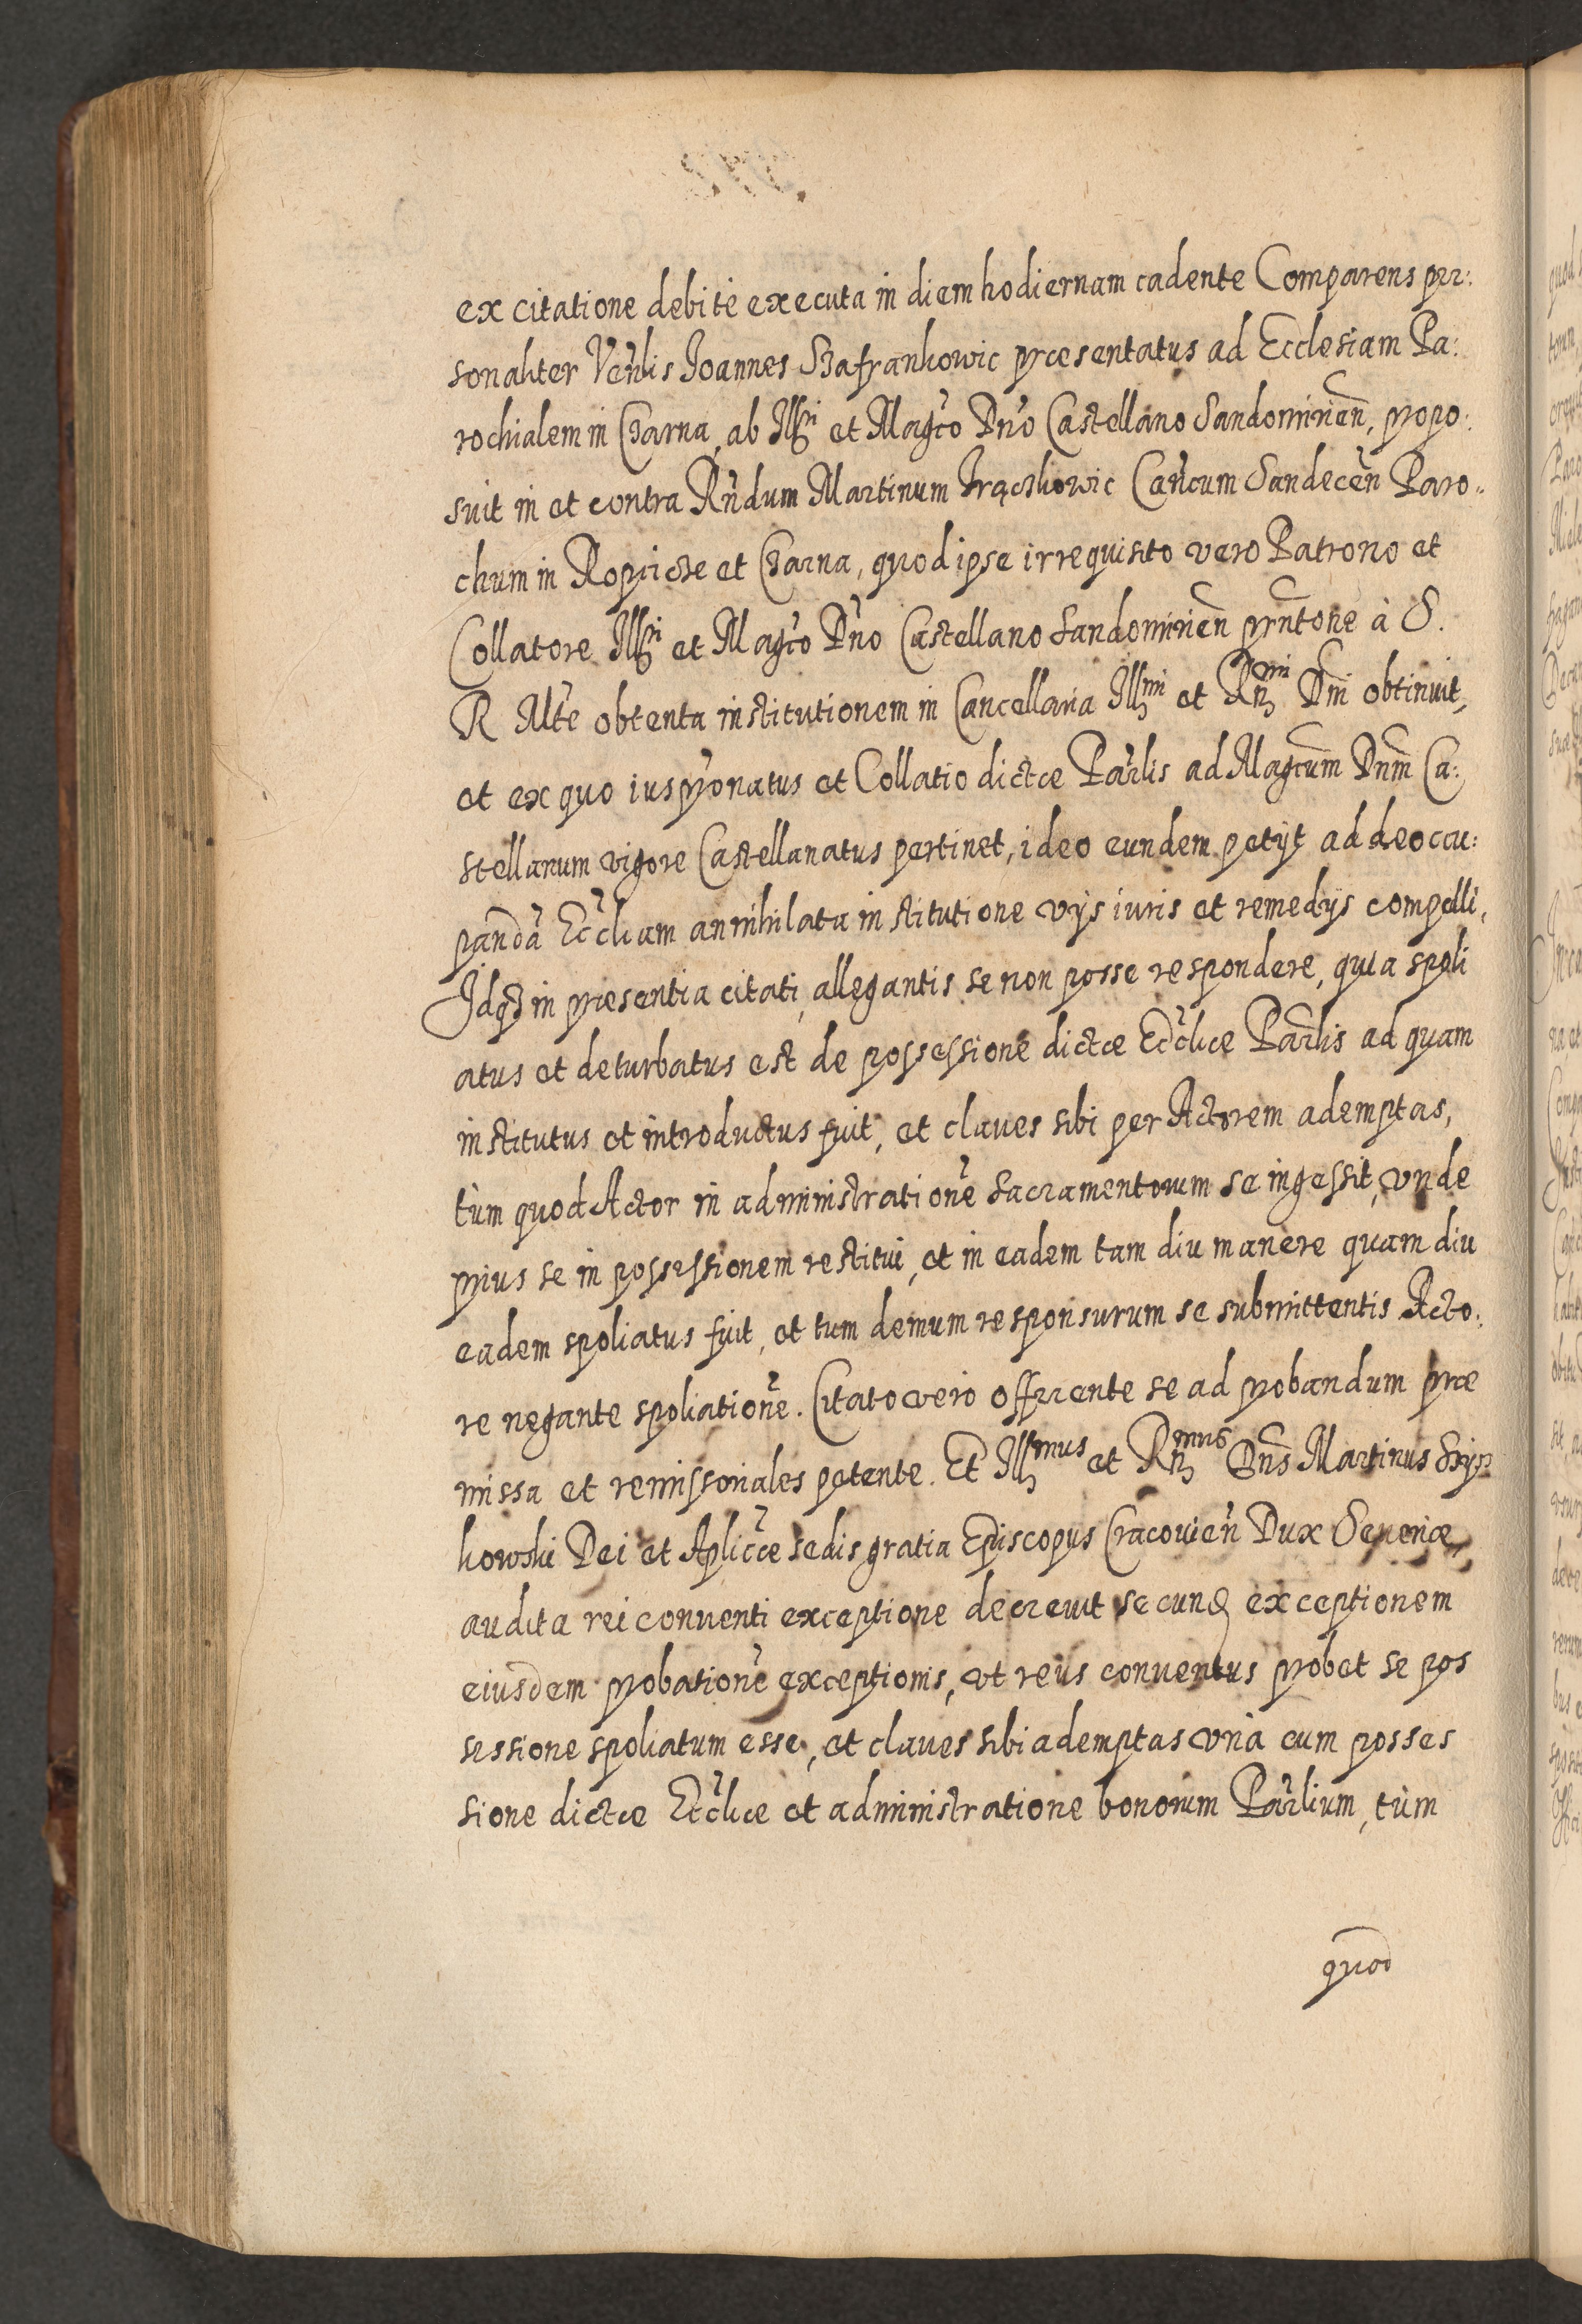 ex citatione debitè executa in diem hodiernam cadente Comparens per:
sonaliter Venlis Joannes Szafrankowic præsentatus ad Ecclesiam Pa:
rochialem in Czarna, ab Illri et Magco Dno Castellano Sandomirien, propo:
suit in et contra Rndum Martinum Frączkowic Cancum Sandecen Paro:
chum in Ropcicze et Czarna, quod ipse irrequisito vero Patrono et
Collatore Illri et Magco Dno Castellano Sandomirien pnntone à S.
R Mtte obtenta institutionem in Cancellaria Illmi et Rmi Dni obtinuit,
et ex quo ius pronatus et Collatio dictæ Parlis ad Magcum Dnm Ca:
stellanum vigore Castellanatus pertinet, ideo eundem petijt ad deoccu:
panda Eccliam annihilata institutione vijs iuris et remedijs compelli,
Idq3 in præsentia citati, allegantis se non posse respondere, quia spoli
atus et deturbatus est de possessione dictæ Eccliæ Parlis ad quam
institutus et introductus fuit, et claues sibi per Actorem ademptas,
tùm quod Actor in administratione Sacramentorum se ingessit, vnde
prius se in possessionem restitui, et in eadem tam diu manere quam diu
eadem spoliatus fuit, et tum demum responsurum se submittentis Acto:
re negante spoliatione. Citato vero offerente se ad probandum præ
missa et remissoriales petente. Et Illmus et Rmus Dns Martinus Szysz
kowski Dei et Aplicæ sedis gratia Episcopus Cracouien Dux Seueriæ,
audita rei conuenti exceptione decreuit secund exceptionem
eiusdem probatione exceptionis, vt reus conuentus probet se pos
sessione spoliatum esse, et claues sibi ademptas vnà cum posses
sione dictæ Eccliæ et administratione bonorum Parlium, tùm
quod